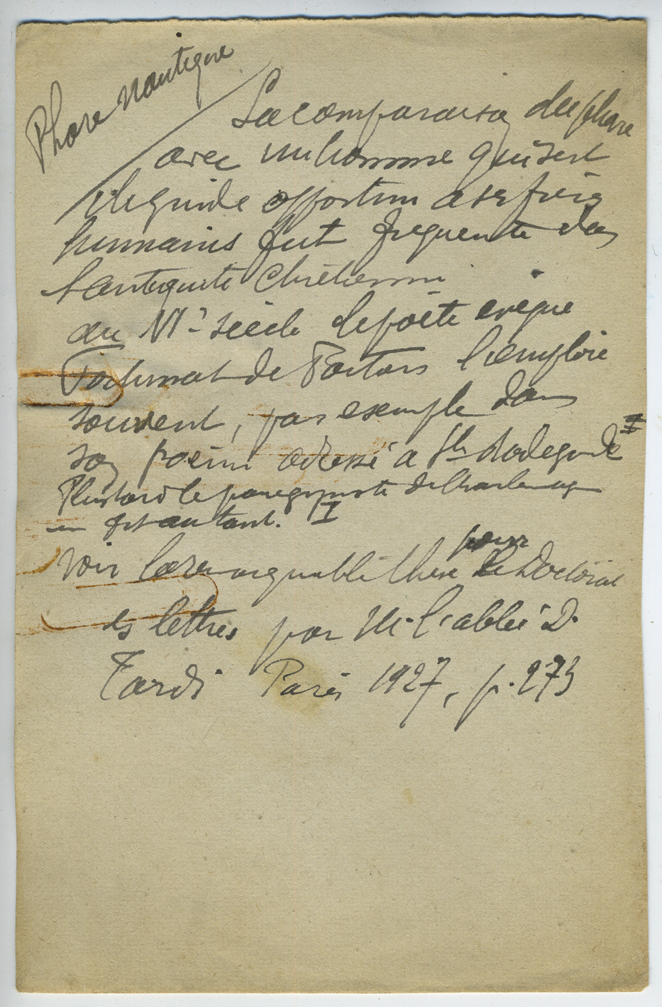 Phare nautique
La comparaison du phare
avec un homme qui sert
de guide opportun à ses frères
humains fut fréquente dans
l'antiquité chrétienne
au VIe siècle le poète évêque
Fortunat de Poitiers l'emploie
souvent, par exemple dans
son poème adressé à Ste Radegonde I
Plus tard le panégyriste de Charlemagne
en fit autant. I
Voir la remarquable thèse pour le Doctorat
ès lettres par M. l'abbé D.
Tardi Paris 1927, p. 273